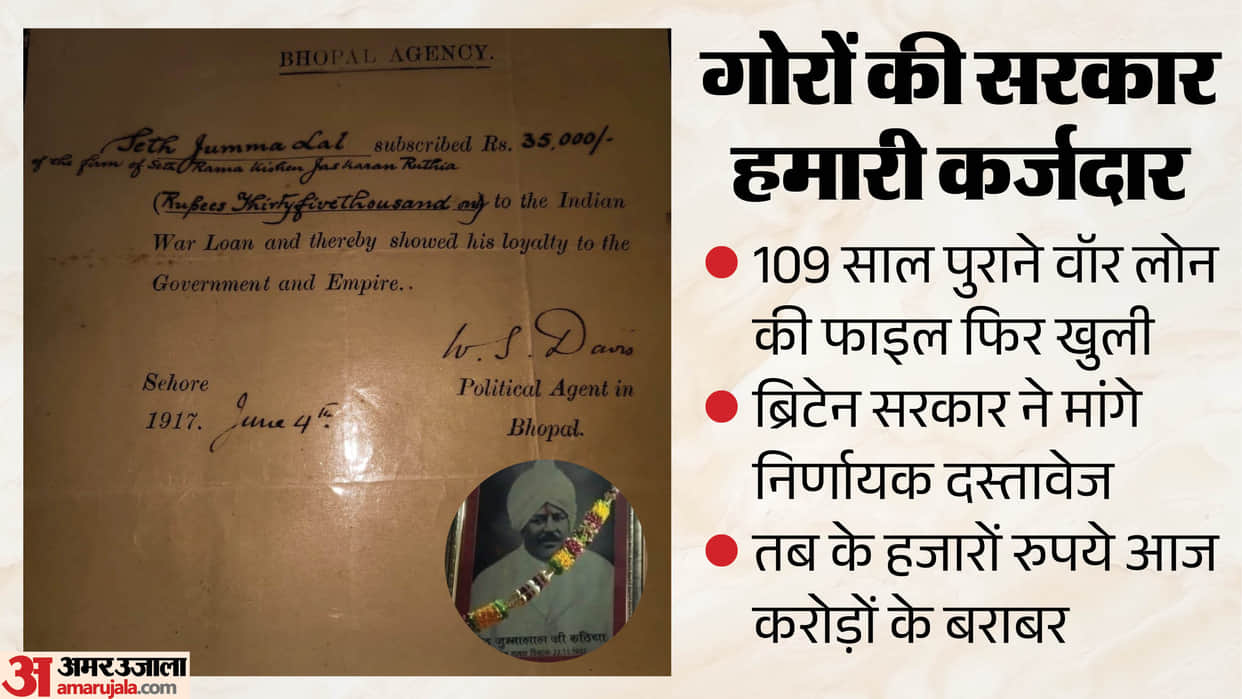 BHOPAL AGENCY.
Seth Jumma Lal subscribed Rs. 35,000/-
of the firm of Seth Rama Kishen Jaskaran Ruthia
(Rupees Thirty five thousand only) to the Indian
War Loan and thereby showed his loyalty to the
Government and Empire..
W. S. Davis
Sehore
Political Agent in
1917. June 4th.
Bhopal.
जुम्मालाल जी रूठिया
गोरों की सरकार
हमारी कर्जदार
109 साल पुराने वॉर लोन
की फाइल फिर खुली
ब्रिटेन सरकार ने मांगे
निर्णायक दस्तावेज
तब के हजारों रुपये आज
करोड़ों के बराबर
अमर उजाला
amarujala.com